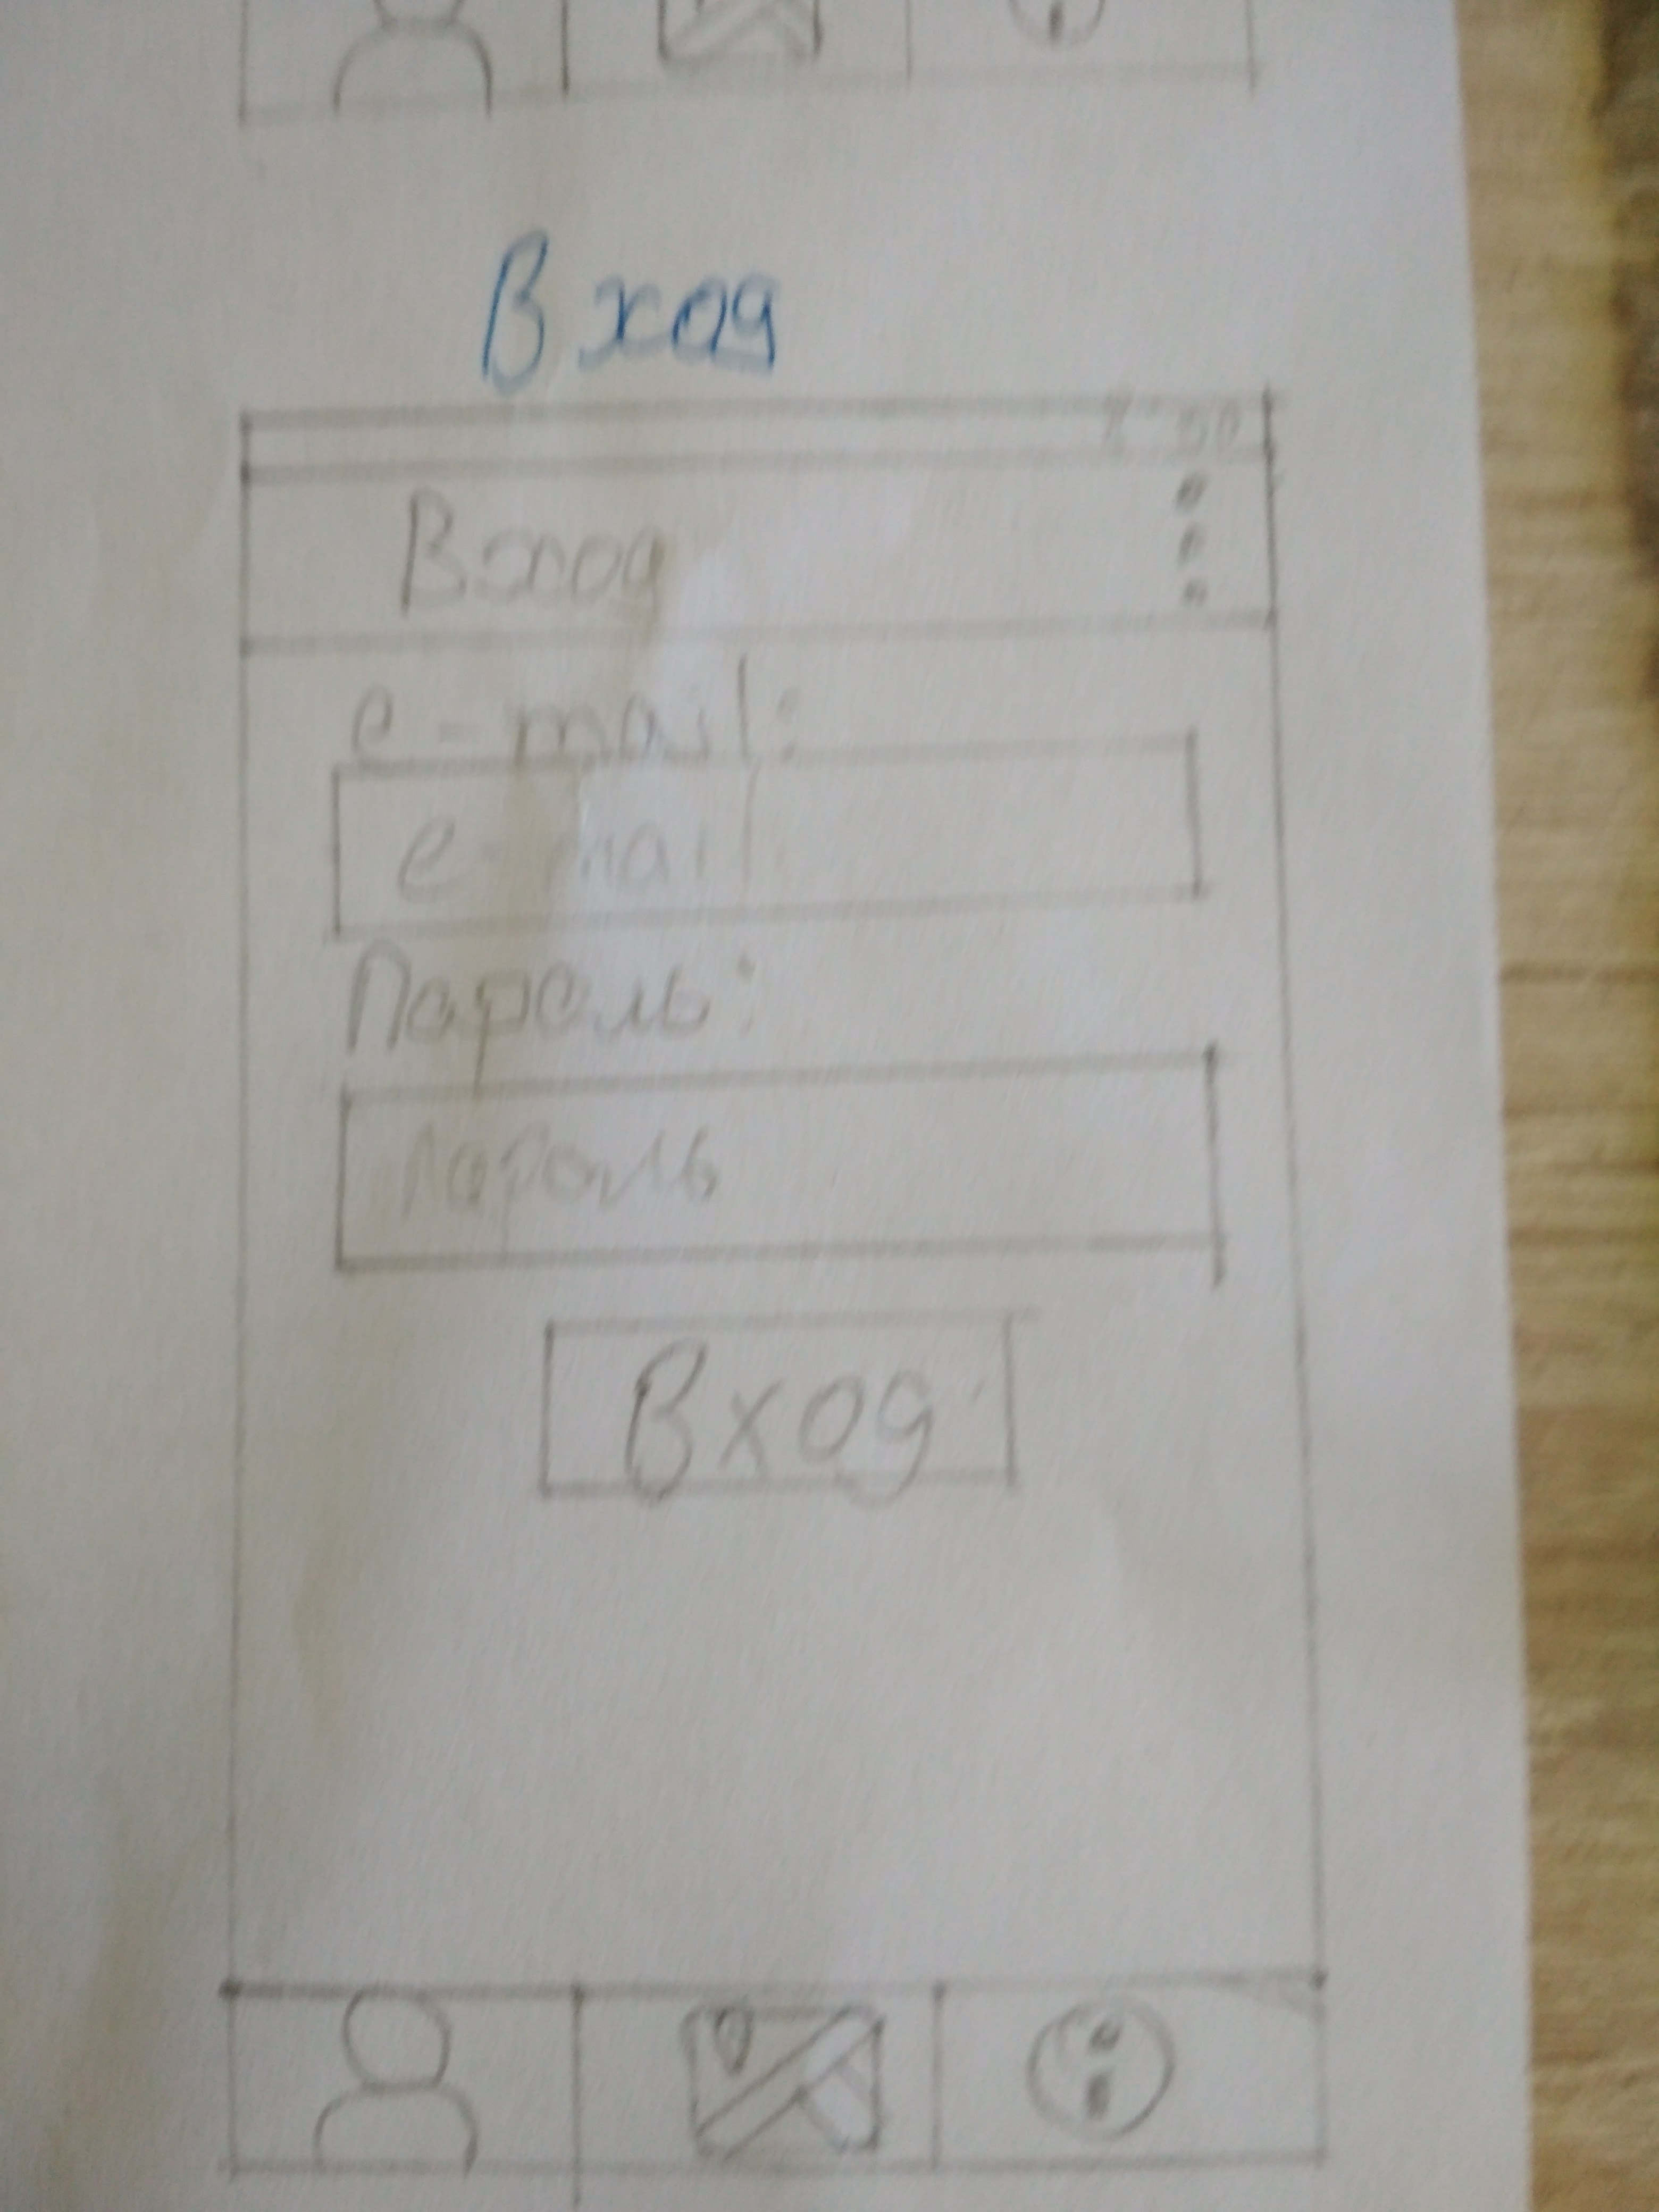 Вход
Вход
e-mail:
e-mail
Пароль:
Пароль
Вход